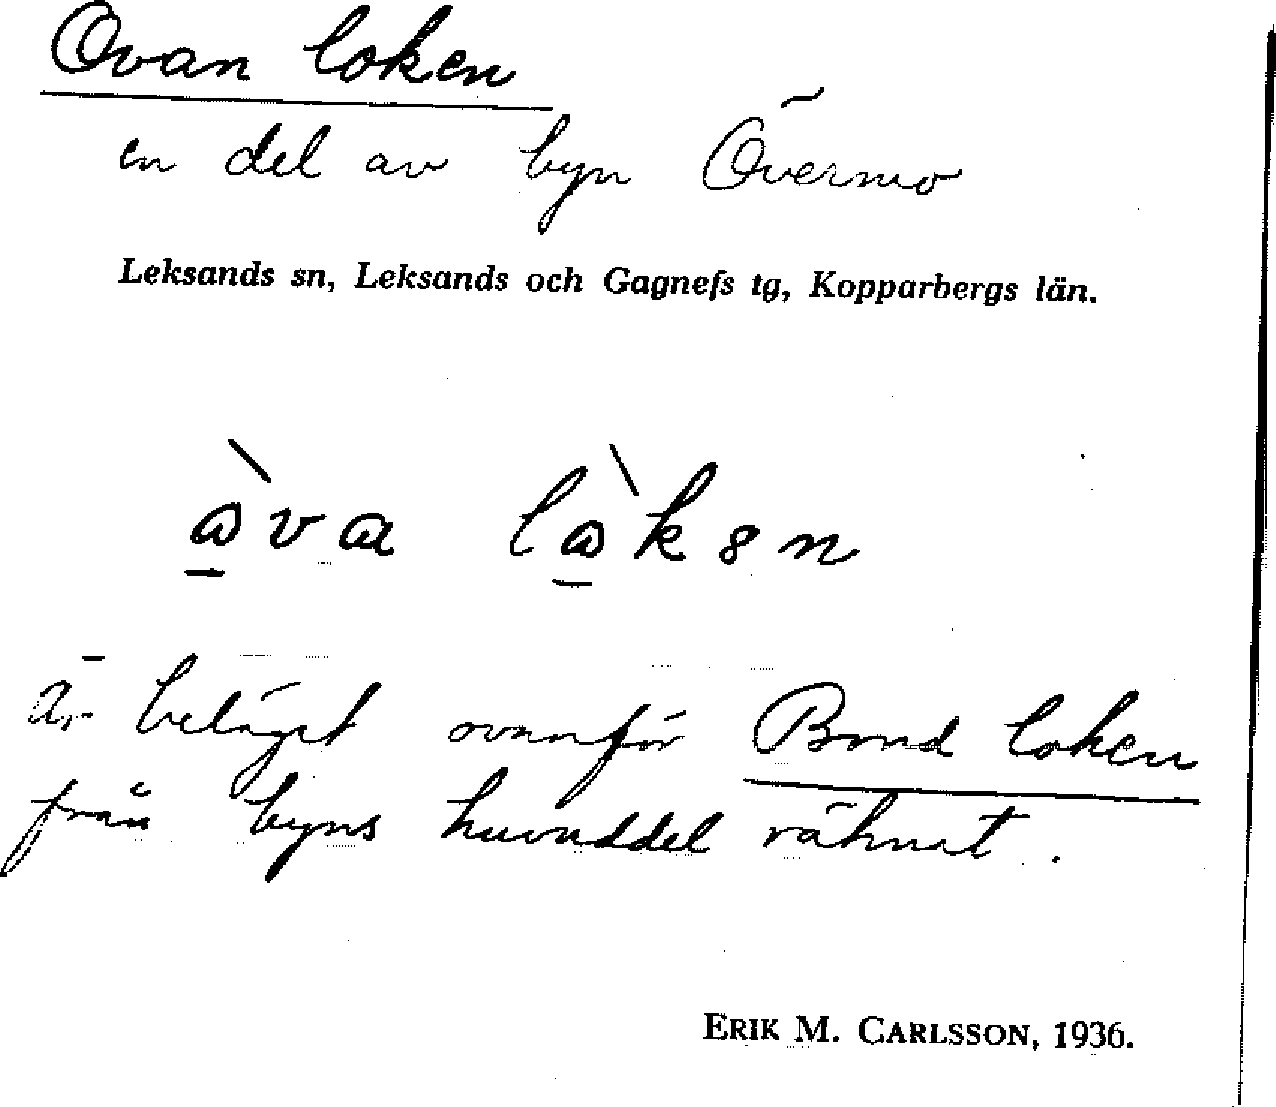 Ovan loken
en del av byn Övermo
Leksands sn, Leksands och Gagnefs tg, Kopparbergs län.
är beläget ovanför Bond loken
från byns huvuddel räknat.
ERIK M. CARLSSON, 1936.